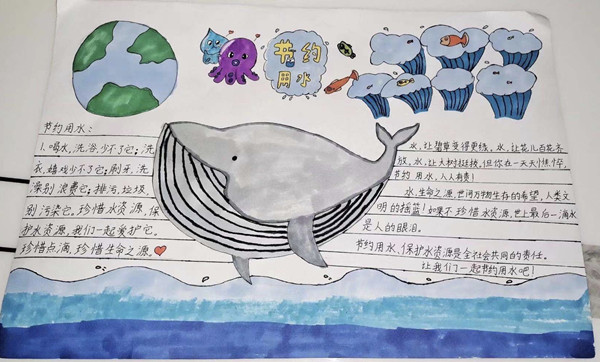 节约
用水
节约用水:
1.喝水,洗浴,少不了它;洗
衣,嬉戏少不了它;刷牙,洗
澡别浪费它;排污,垃圾
别污染它,珍惜水资源,保
护水资源,我们一起爱护它。
珍惜点滴,珍惜生命之源。
水,让碧草变得更绿,水,让花儿百花齐
放,水,让大树挺拔,但你在一天天憔悴,
节约用水,人人有责!
水,生命之源,世间万物生存的希望,人类文
明的摇篮!如果不珍惜水资源,世上最后一滴水
是人的眼泪。
节约用水、保护水资源是全社会共同的责任。
让我们一起节约用水吧!